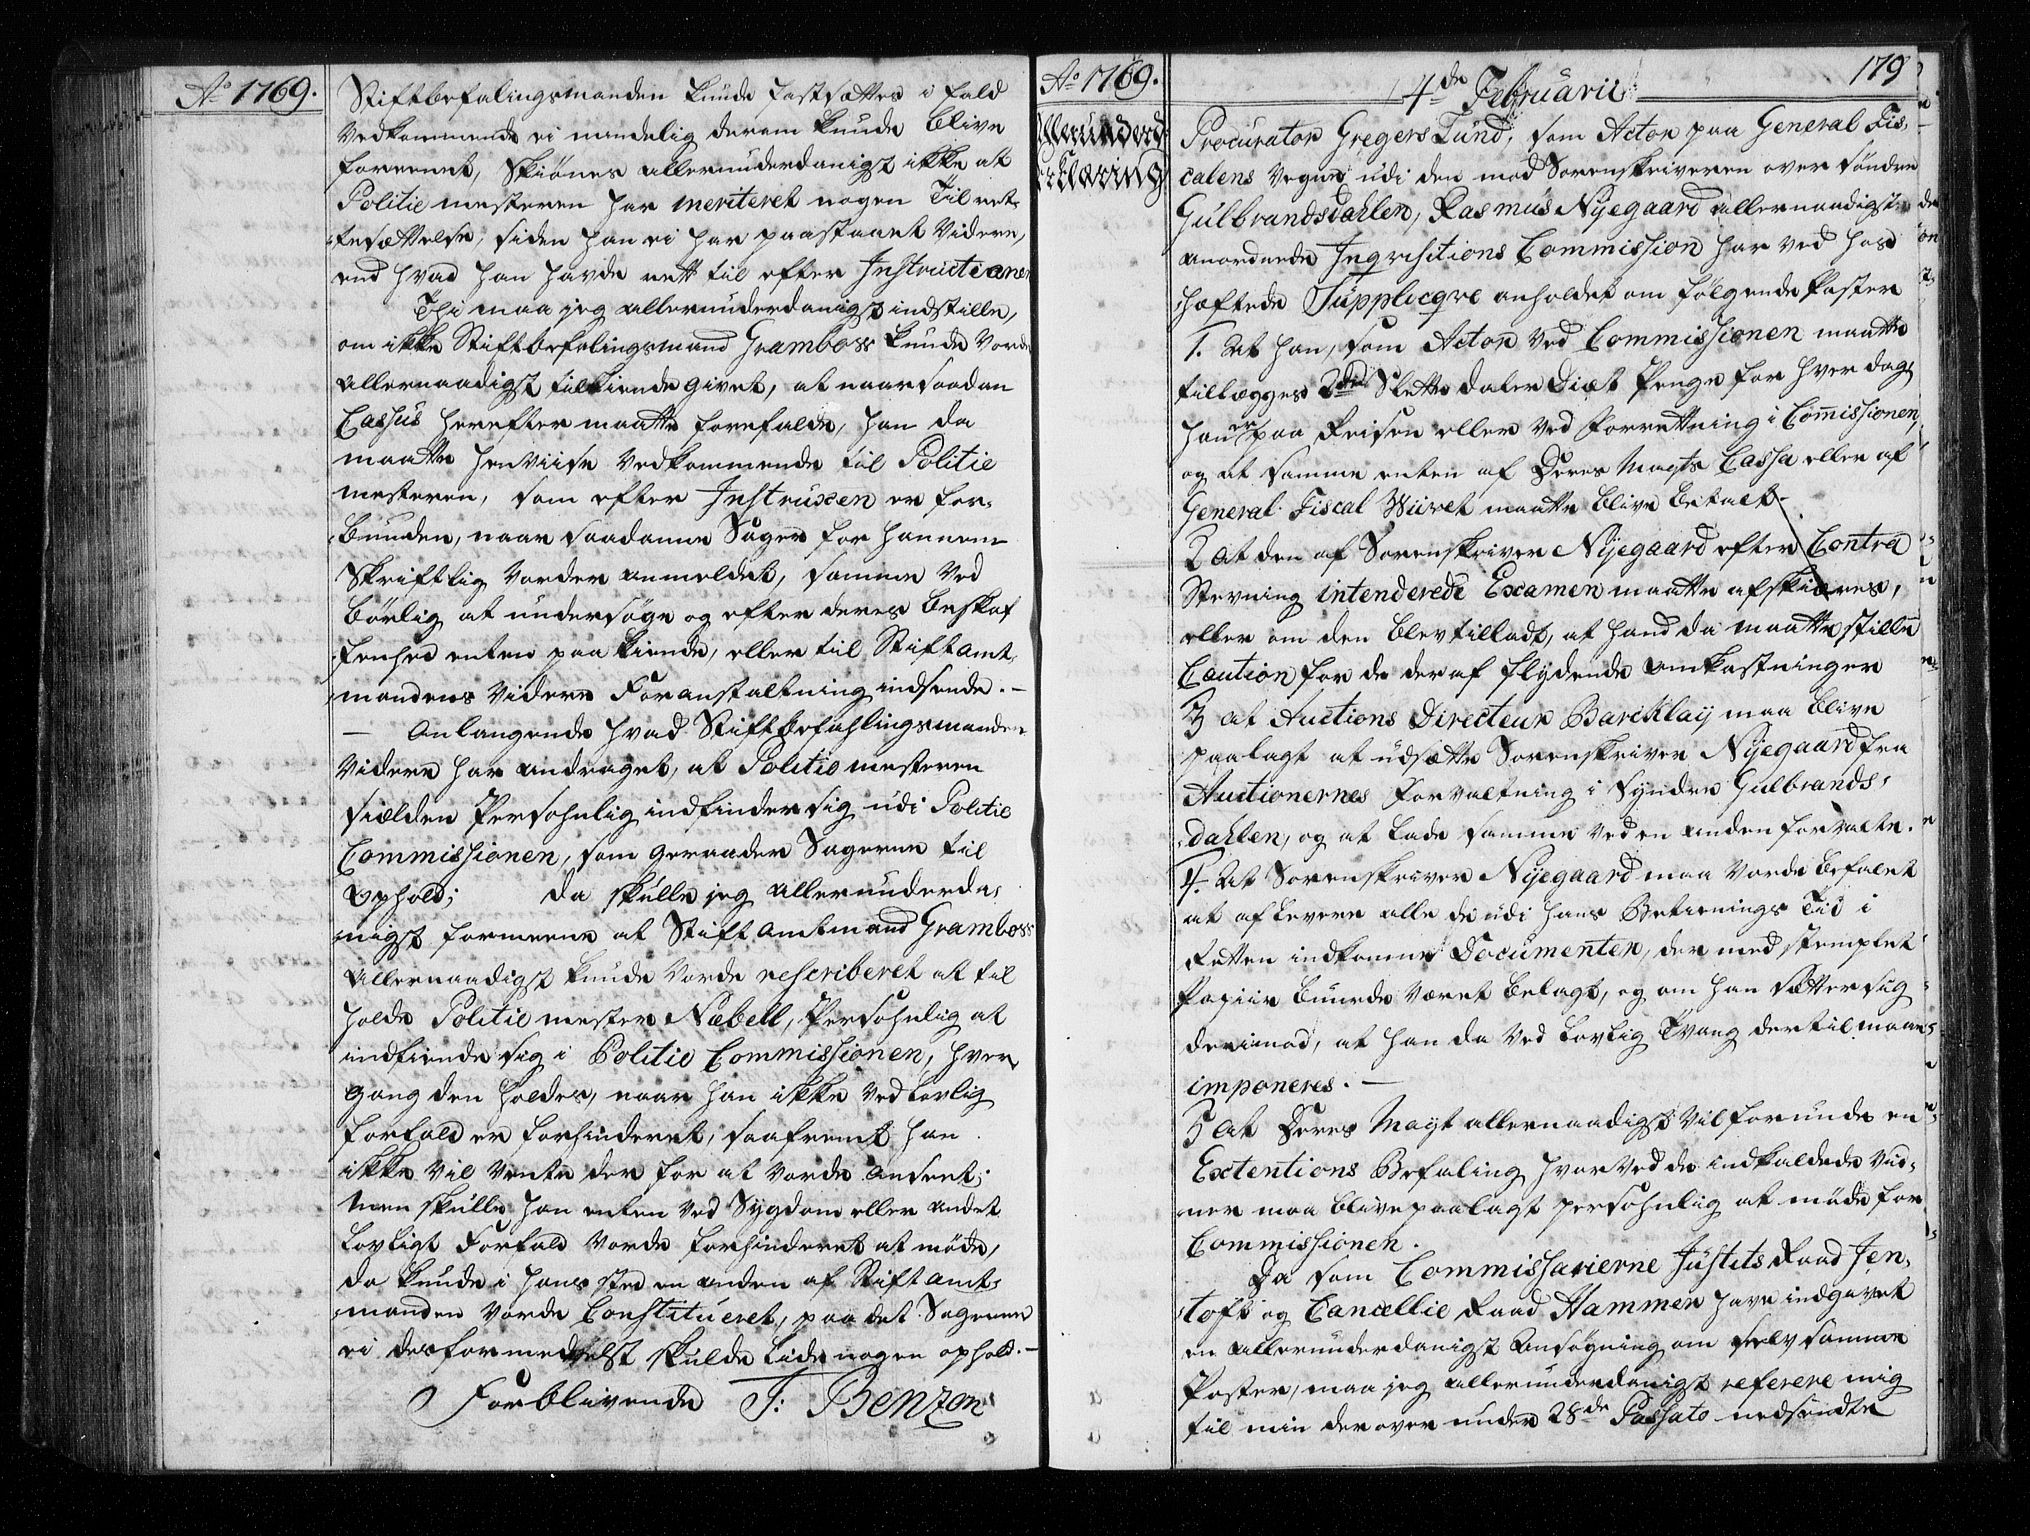 Ao 1769.
Stiftbefalingsmanden kunde fastsættes i fald
Vedkommende ei mindelig derom kunde blive
foreenet, Skiønnes allerunderdanigst ikke at
Politie mesteren har meriteret nogen Til ret-
tesættelse, siden han ei har paastaaet videre,
end hvad han havde rett til efter Instructionen
Thi maa jeg allerunderdanigst indstille,
om ikke Stiftbefalingsmand Grambow kunde Vorde
allernaadigst tilkiende givet, at naar saadan
Cassus herefter maatte forefalde, han da
maatte henviise Vedkommende til Politie
mesteren, som efter Instruxen er for-
bunden, naar saadanne Sager for hannem
Skriftlig vorder anmeldet, samme ved
börlig at undersöge og efter deres beskaf
fenhed enten paa kiende, eller til Stiftamt-
mandens videre Foranstaltning indsende. -
- Anlangende hvad Stiftbefahlingsmanden
videre har andraget, at Politie mesteren
sielden Persohnlig indfinder sig udi Politie
Commissionen, som geraader Sagerne til
Ophold; da skulle jeg allerunderda-
nigst formeene at Stift amtmand Grambow
allernaadigst kunde vorde rescriberet at til
holde Politie mester Næbell, Persohnlig at
indfinde sig i Politie Commissionen, hver
gang den holdes, naar han ikke ved lovlig
forfald er forhinderet, saafremt han
ikke vil vente der for at vorde anseet;
Men skulle han enten ved Sygdom eller andet
lovligt Forfald vorde forhinderet at møde,
da kunde i hans sted en anden af Stift amt-
manden vorde Constitueret, paa det Sagerne
ei desformedelst skulde lide nogen ophold. -
Forblivende T: Benzon
Ao 1769.
Allerunderd.
Erklæring
4de Februarii
179
Procurator Gregers Lund, som Actor paa General Fis-
calens Vegne udi den mod Sorenskriveren over söndre
Gulbrandsdahlen, Rasmus Nyegaard allernaadigst
anordnede Inqvisitions Commission har ved hos
hæftede Supplicqve anholdet om følgende Poster
1. At han, som Actor ved Commissionen maatte
tillægges 2de Slette daler Diæt Penge for hver dag
han er paa Reisen eller ved Forrettning i Commissionen,
og at samme enten af Deres Mayts Cassa eller af
General Fiscal Wiivet maatte blive betalt -
2 at den af Sorenskriver Nyegaard efter Contra
Stevning intenderede Examen maatte afskiæres,
eller om den blev tilladt, at hand da maatte stille
Caution for de deraf flydende omkostninger
3 at Auctions Directeur Barcklay maa blive
paalagt at udsætte Sorenskriver Nyegaard fra
Auctionernes Forvaltning i Syndre Gulbrands-
dahlen, og at lade samme ved en anden forvalte.
4. At Sorenskriver Nyegaard maa vorde befalet
at aflevere alle de udi hans Betienings Tid i
Retten indkomne Documenter, der med stemplet
Papiir burde været belagt, og om han sætter sig
derimod, at han da ved lovlig Tvang dertil maae
imponeres. -
5 At Deres Mayt allernaadigst vil forunde en
Extentions Befaling hvorved de indkaldede vid-
ner maa blive paalagt persohnlig at møde for
Commissionen.
Da som Commissarierne Justits Raad Jen-
toft og Cancellie Raad Hammer have indgivet
en allerunderdanigst Ansøgning om selv samme
Poster, maa jeg allerunderdanigst referere mig
til min derover under 28de Passato nedsendte